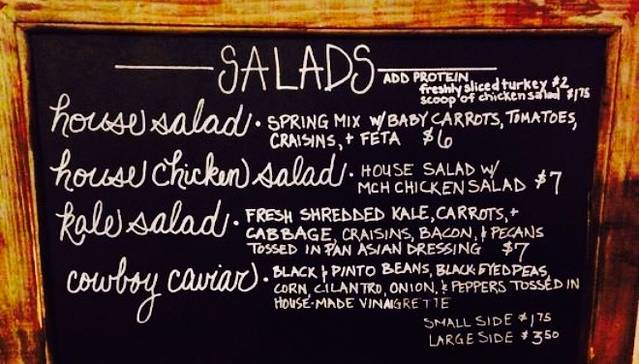 SALADS
ADD PROTEIN
freshly sliced turkey $2
scoop of chicken salad $1.75
house salad · SPRING MIX W/ BABY CARROTS, TOMATOES,
CRAISINS, + FETA $6
house chicken salad · HOUSE SALAD W/
MCH CHICKEN SALAD $7
kale salad · FRESH SHREDDED KALE, CARROTS, +
CABBAGE, CRAISINS, BACON, & PECANS
TOSSED IN PAN ASIAN DRESSING $7
cowboy caviar · BLACK & PINTO BEANS, BLACK-EYED PEAS,
CORN, CILANTRO, ONION, & PEPPERS TOSSED IN
HOUSE-MADE VINAIGRETTE
SMALL SIDE $1.75
LARGE SIDE $3.50